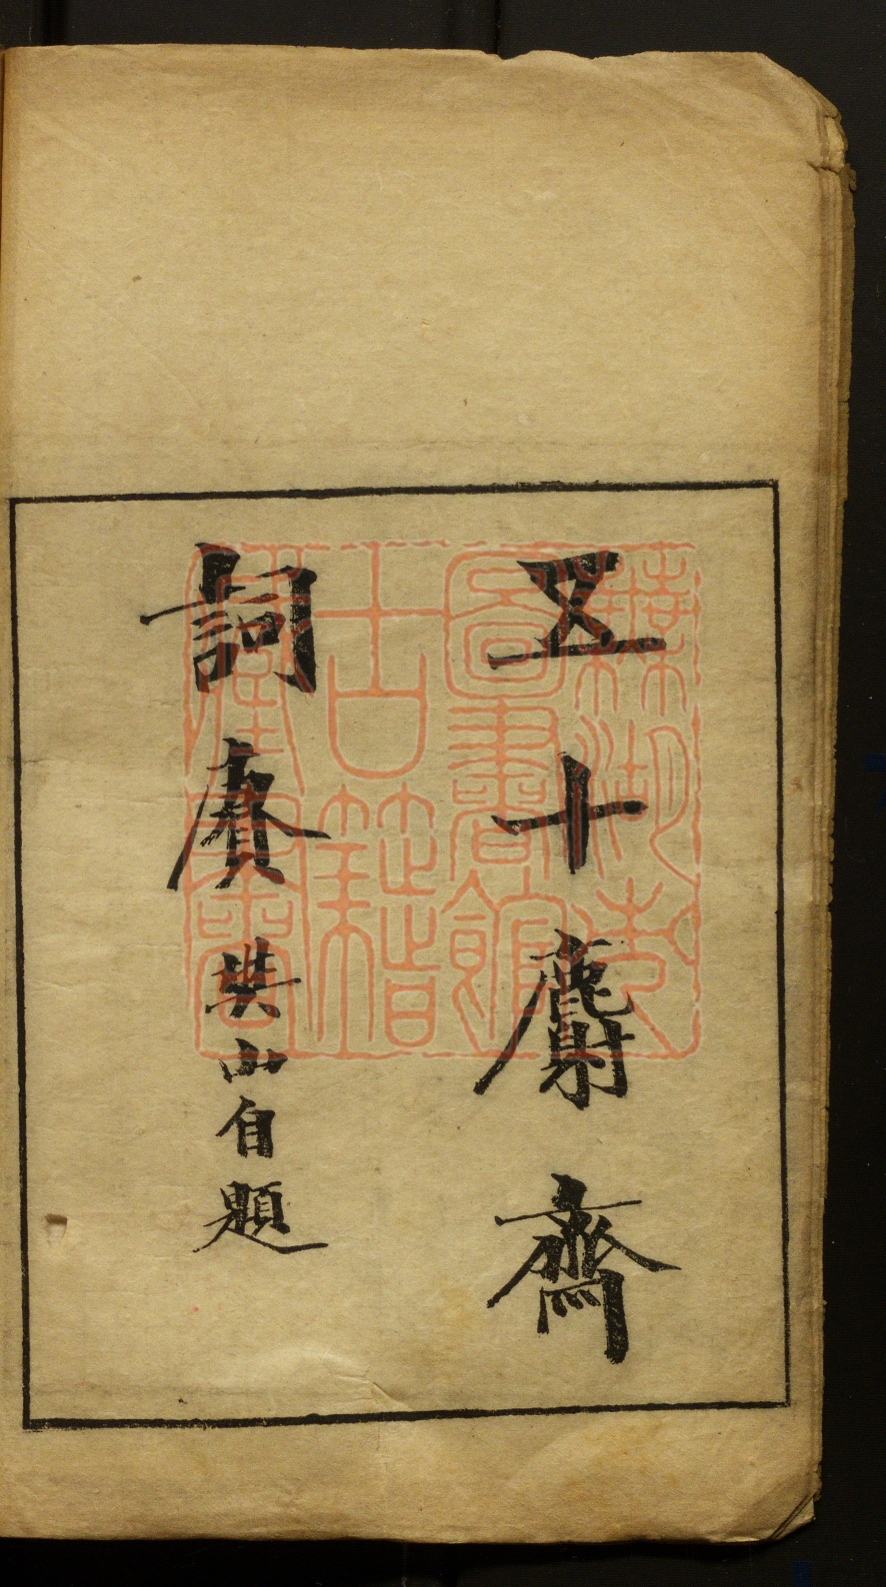 五十麝齋
詞賡
樊山自題
圖書館
古籍